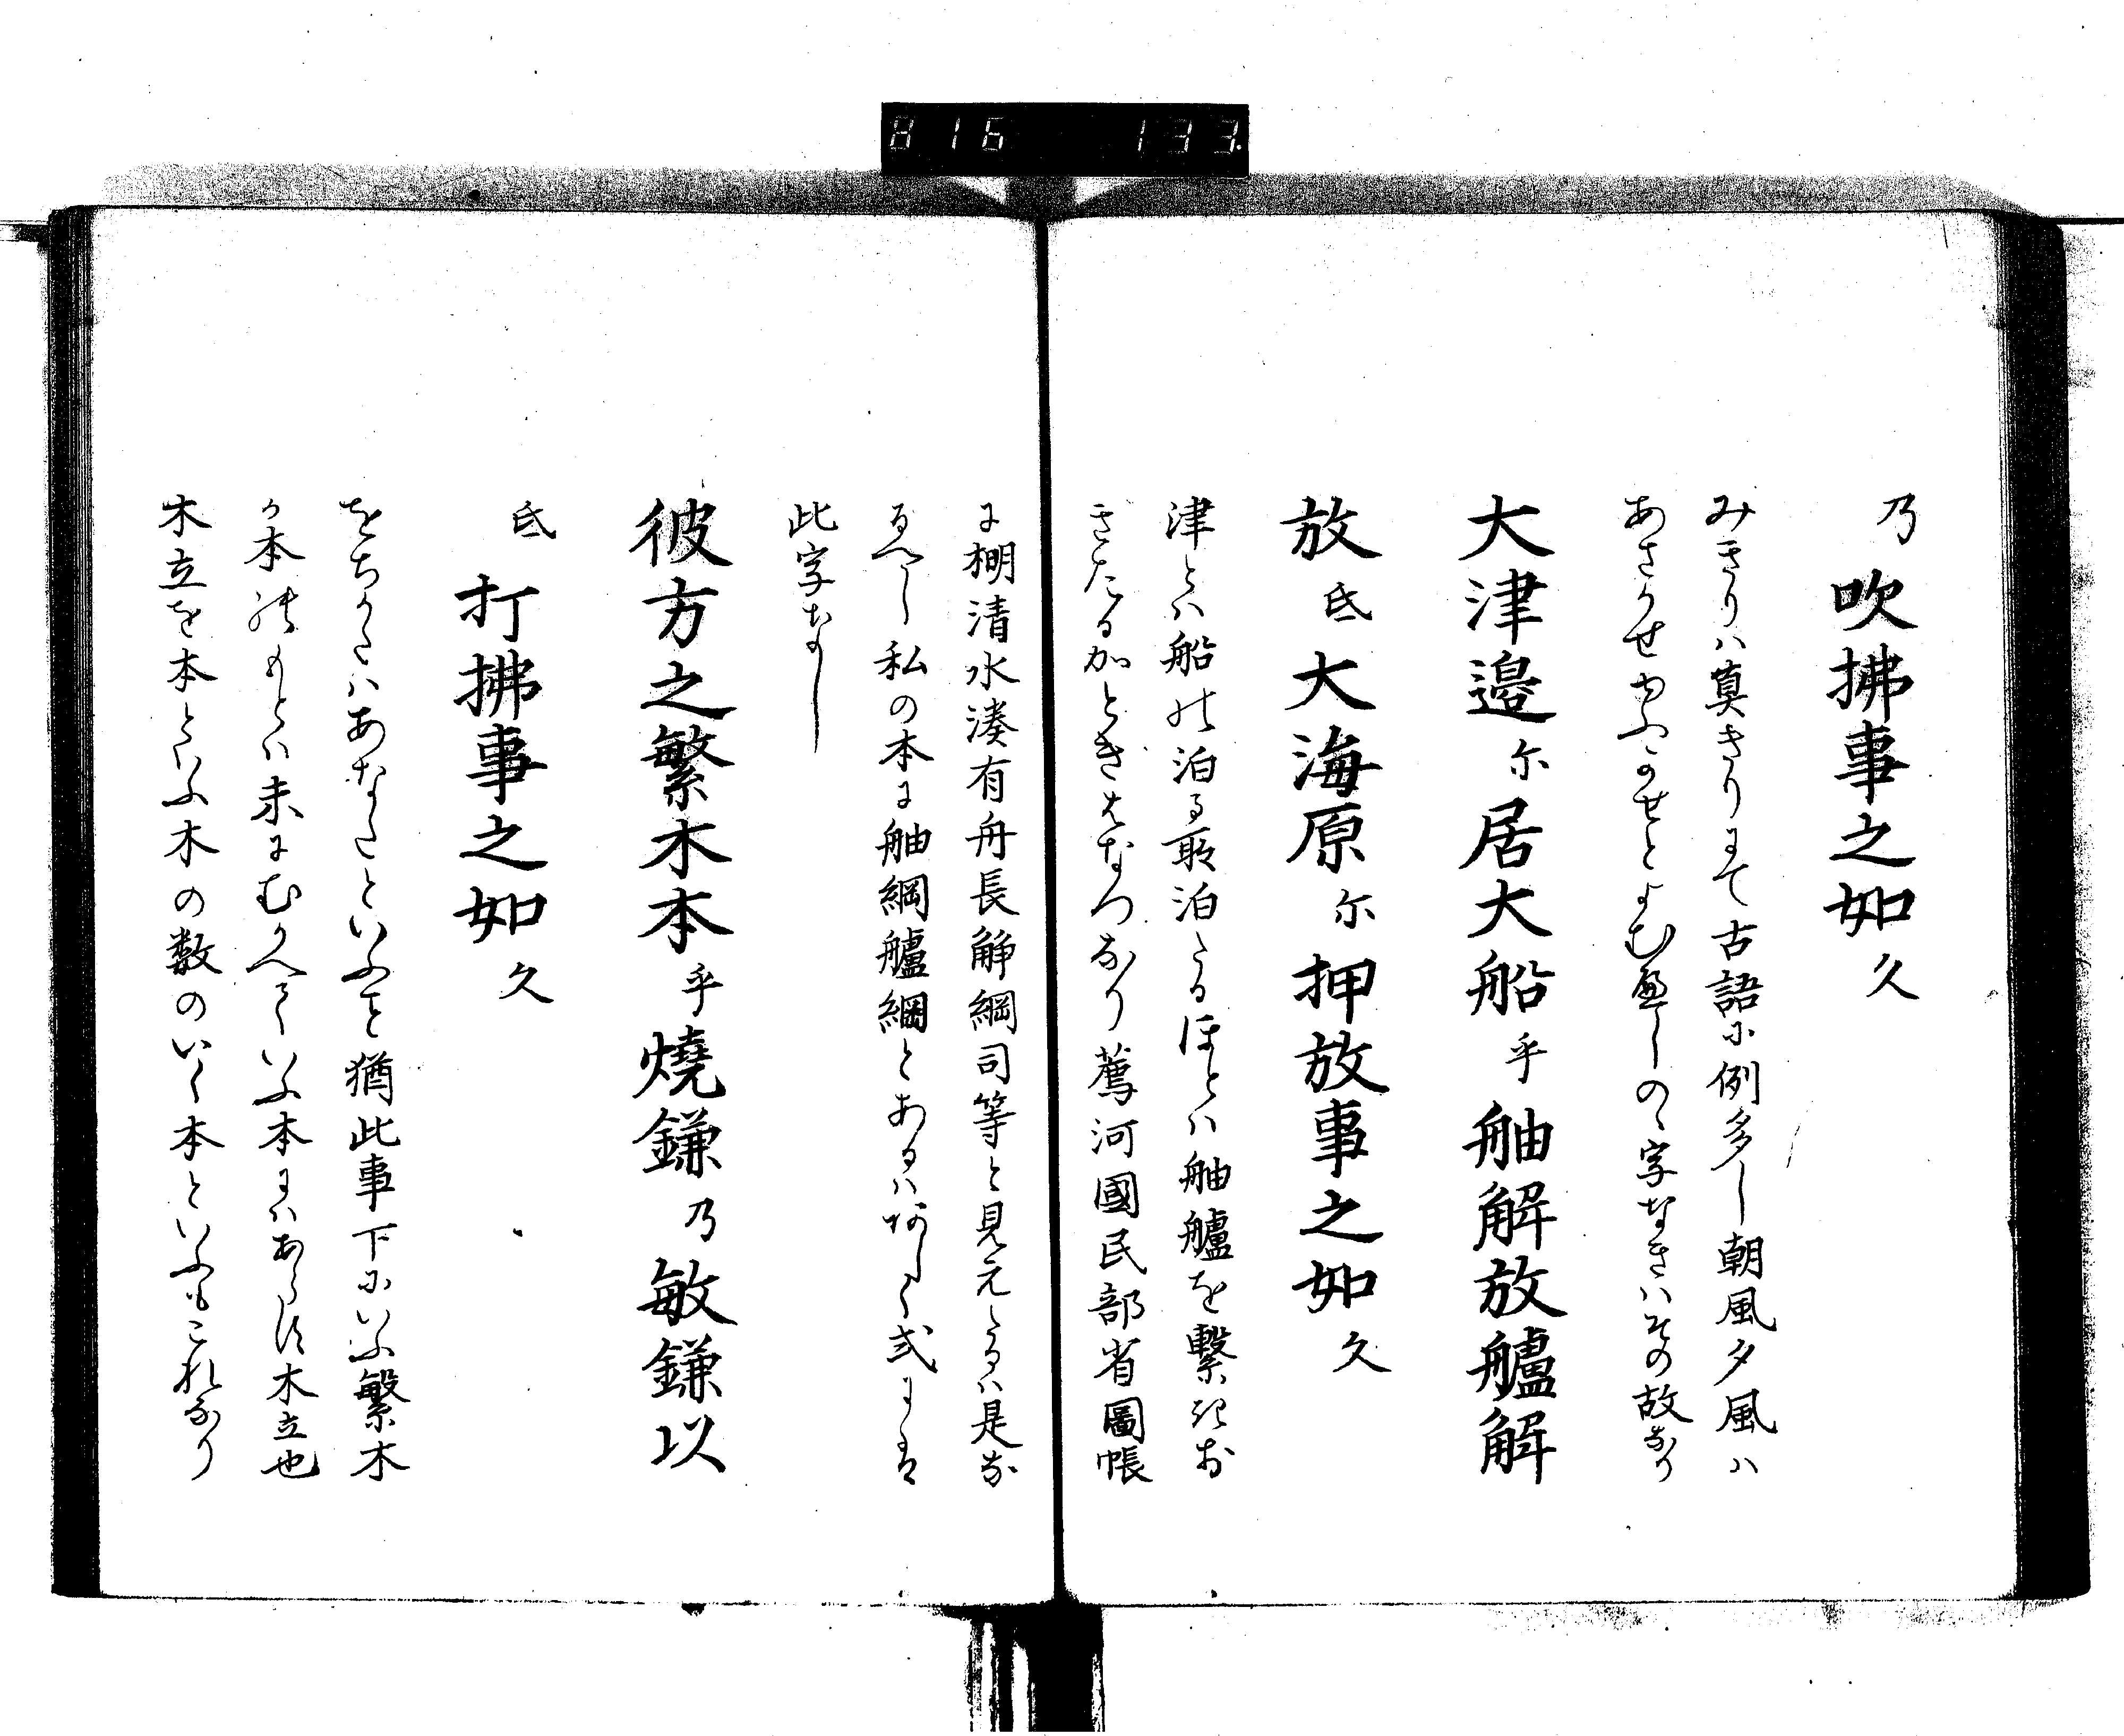 816 133.
乃吹拂事之如久
みきりハ莫きりにて古語尓例多し朝風夕風ハ
あさかせゆふかせとよむ無しのゝ字なきハその故なり
大津邉尓居大船乎舳解放艫解
放氐大海原尓押放事之如久
津とハ船の泊る所泊たるほとハ舳艫を繋きお
きたる加ときはなつなり薦河國民部省圖帳
に棚清水湊有舟長解綱司等と見えたるハ是な
るへし私の本に舳綱艫綱とあるハわろく式には
此字なし
彼方之繁木本乎燒鎌乃敏鎌以
氐打拂事之如久
をちかたハあなたといふを猶此事下にいふ繁木
か本のもとハ末にむかへていふ本にハあらす木立也
木立を本といふ木の数のいく本といふもこれなり